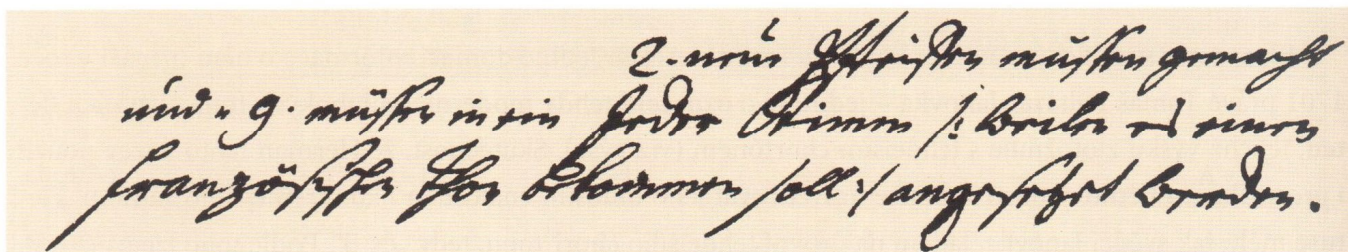 2. neue Pfeiffen müssen gemacht
und " 9. müssen in ein Jeder Stimm /: weilen es einen
französischen Thon bekommen soll :/ angesetzet werden.